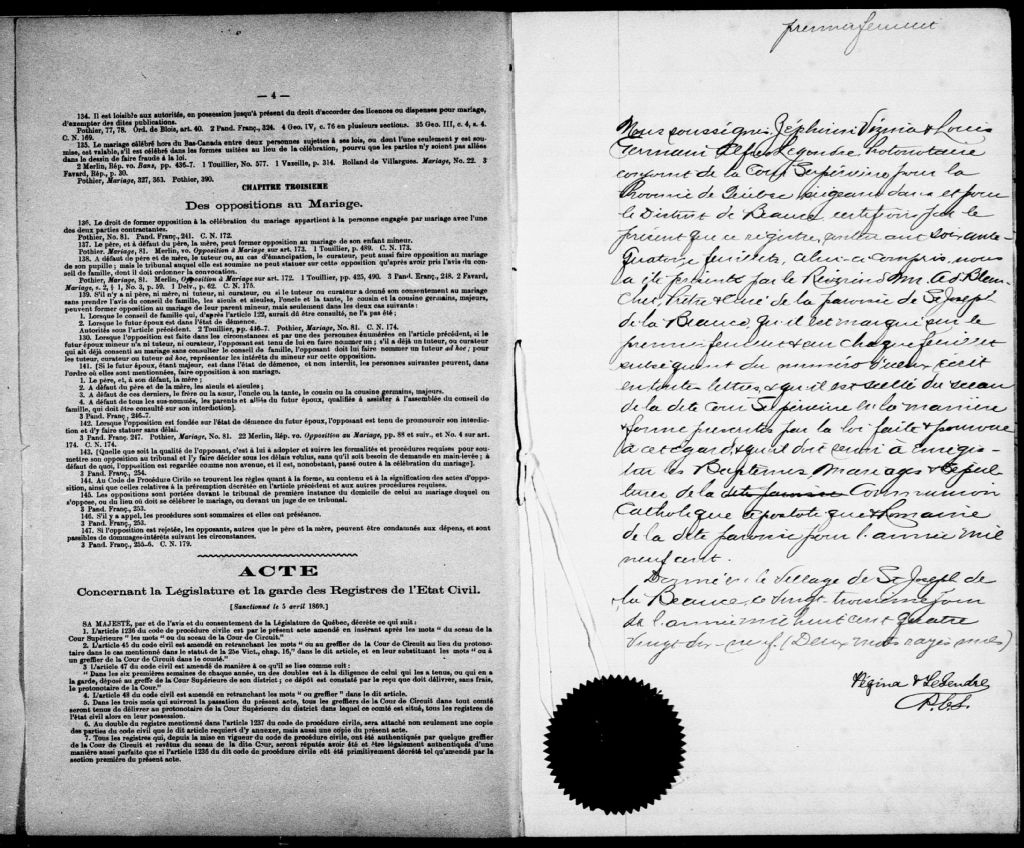 — 4 —
134. Il est loisible aux autorités, en possession jusqu'à présent du droit d'accorder des licences ou dispenses pour mariage,
d'exempter des dites publications.
Pothier, 77, 78. Ord. de Blois, art. 40. 2 Pand. Franç., 324. 4 Geo. IV, c. 76 en plusieurs sections. 35 Geo. III, c. 4, s. 4.
C. N. 169.
135. Le mariage célébré hors du Bas-Canada entre deux personnes sujettes à ses lois, ou dont l'une seulement y est soumise,
est valable, s'il est célébré dans les formes usitées au lieu de la célébration, pourvu que les parties n'y soient pas allées
dans le dessin de faire fraude à la loi.
2 Merlin, Rép. vo. Bans, pp. 436-7. 1 Touillier, No. 577. 1 Vazeille, p. 314. Rolland de Villargues. Mariage, No. 22. 3
Favard, Rép., p. 30.
Pothier, Mariage, 327, 363. Pothier, 390.
CHAPITRE TROISIEME
Des oppositions au Mariage.
136. Le droit de former opposition à la célébration du mariage appartient à la personne engagée par mariage avec l'une
des deux parties contractantes.
Pothier, No. 81. Pand. Franç., 241. C. N. 172.
137. Le père, et à défaut du père, la mère, peut former opposition au mariage de son enfant mineur.
Pothier, Mariage, 81. Merlin, vo. Opposition à Mariage sur art. 173. 1 Touillier, p. 489. C. N. 173.
138. A défaut de père et de mère, le tuteur ou, au cas d'émancipation, le curateur, peut aussi faire opposition au mariage
de son pupille; mais le tribunal auquel elle est soumise ne peut statuer sur cette opposition qu'après avoir pris l'avis du conseil
de famille, dont il doit ordonner la convocation.
Pothier, Mariage, 81. Merlin, Opposition à Mariage sur art. 172. 1 Touillier, pp. 425, 490. 3 Pand. Franç., 248. 2 Favard,
Mariage, s. 2, § 1, No. 3, p. 59. 1 Delv., p. 62. C. N. 175.
139. S'il n'y a ni père, ni mère, ni tuteur, ni curateur, ou si le tuteur ou curateur a donné son consentement au mariage
sans prendre l'avis du conseil de famille, les aieuls et aieules, l'oncle et la tante, le cousin et la cousine germains, majeurs,
peuvent former opposition au mariage de leur parent mineur, mais seulement dans les deux cas suivants:
1. Lorsque le conseil de famille qui, d'après l'article 122, aurait dû être consulté, ne l'a pas été;
2. Lorsque le futur époux est dans l'état de démence.
Autorités sous l'article précédent. 2 Touillier, pp. 416-7. Pothier, Mariage, No. 81. C. N. 174.
130. Lorsque l'opposition est faite dans les circonstances et par une des personnes énumérées en l'article précédent, si le
futur époux mineur n'a ni tuteur, ni curateur, l'opposant est tenu de lui en faire nommer un; s'il a déjà un tuteur, ou curateur
qui ait déjà consenti au mariage sans consulter le conseil de famille, l'opposant doit lui faire nommer un tuteur ad hoc; pour
les tuteur, curateur ou tuteur ad hoc, représenter les intérêts du mineur sur cette opposition.
141. [Si le futur époux, étant majeur, est dans l'état de démence, et non interdit, les personnes suivantes peuvent, dans
l'ordre où elles sont mentionnées, faire opposition à son mariage.
1. Le père, et, à son défaut, la mère;
2. A défaut du père et de la mère, les aieuls et aieules;
3. A défaut de ces derniers, le frère ou la sœur, l'oncle ou la tante, le cousin ou la cousine germains, majeurs.
4. A défaut de tous les sus-nommés, les parents et alliés du futur époux, qualifiés à assister à l'assemblée du conseil de
famille, qui doit être consulté sur son interdiction].
3 Pand. Franç., 246-7.
142. Lorsque l'opposition est fondée sur l'état de démence du futur époux, l'opposant est tenu de promouvoir son interdiction
et d'y faire statuer sans délai.
3 Pand. Franç. 247. Pothier, Mariage, No. 81. 22 Merlin, Rép. vo. Opposition au Mariage, pp. 88 et suiv., et No. 4 sur art.
174. C. N. 174.
143. [Quelle que soit la qualité de l'opposant, c'est à lui à adopter et suivre les formalités et procédures requises pour soumettre
son opposition au tribunal et l'y faire décider sous les délais voulus, sans qu'il soit besoin de demande en main-levée; à
défaut de quoi, l'opposition est regardée comme non avenue, et il est, nonobstant, passé outre à la célébration du mariage].
3 Pand. Franç., 254.
144. Au Code de Procédure Civile se trouvent les règles quant à la forme, au contenu et à la signification des actes d'opposition,
ainsi que celles relatives à la péremption décrétée en l'article précédent et aux autres procédures requises.
145. Les oppositions sont portées devant le tribunal de première instance du domicile de celui au mariage duquel on
s'oppose, ou du lieu où doit se célébrer le mariage, ou devant un juge de ce tribunal.
3 Pand. Franç., 253.
146. S'il y a appel, les procédures sont sommaires et elles ont préséance.
3 Pand. Franç., 253.
147. Si l'opposition est rejetée, les opposants, autres que le père et la mère, peuvent être condamnés aux dépens, et sont
passibles de dommages-intérêts suivant les circonstances.
3 Pand. Franç., 255-6. C. N. 179.
ACTE
Concernant la Législature et la garde des Registres de l'Etat Civil.
[Sanctionné le 5 avril 1869.]
SA MAJESTÉ, par et de l'avis et du consentement de la Législature de Québec, décrète ce qui suit:
1. L'article 1236 du code de procédure civile est par le présent acte amendé en insérant après les mots "du sceau de la
Cour Supérieure" les mots "ou du sceau de la Cour de Circuit."
2. L'article 45 du code civil est amendé en retranchant les mots "ou au greffier de la Cour de Circuit au lieu du protonotaire
dans le cas mentionné dans le statut de la 25e Vict., chap. 16," dans le dit article, et en leur substituant les mots "ou à
un greffier de la Cour de Circuit dans le comté."
3 L'article 47 du code civil est amendé de manière à ce qu'il se lise comme suit:
"Dans les six premières semaines de chaque année, un des doubles est à la diligence de celui qui les a tenus, ou qui en a
la garde, déposé au greffe de la Cour Supérieure de son district; ce dépôt est constaté par le reçu que doit délivrer, sans frais,
le protonotaire de la Cour."
4. L'article 48 du code civil est amendé en retranchant les mots "ou greffier" dans le dit article.
5. Dans les trois mois qui suivront la passation du présent acte, tous les greffiers de la Cour de Circuit dans tout comté
seront tenus de délivrer au protonotaire de la Cour Supérieure du district dans lequel ce comté est situé, tous les registres de
l'état civil alors en leur possession.
6. Au double registre mentionné dans l'article 1237 du code de procédure civile, sera attaché non seulement une copie
des parties du code civil que le dit article requiert d'y annexer, mais aussi une copie du présent acte.
7. Tous les registres qui, depuis la mise en vigueur du code de procédure civile, ont été authentiqués par quelque greffier
de la Cour de Circuit et revêtus du sceau de la dite Cour, seront réputés avoir été et être légalement authentiqués d'une
manière aussi parfaite que si l'article 1236 du dit code de procédure civile eût été primitivement décrété tel qu'amendé par la
section première du présent acte.
premier feuillet
Nous soussignés, Zéphirin Vézina & Louis
Legendre Protonotaire
conjoint de la Cour Supérieure pour la
Province de Québec siégeant dans et pour
le District de Beauce, certifions par le
présent que ce registre, contenant soixante
quatorze feuillets, celui-ci compris, nous
a été présenté par le Révérend M. Blanchet,
Prêtre & curé de la paroisse de St Joseph
de la Beauce, qu'il est marqué sur le
premier feuillet & sur chaque feuillet
subséquent du numéro d'iceux écrit
en toutes lettres, & qu'il est scellé du sceau
de la dite Cour Supérieure en la manière
& forme prescrites par la loi faite & pourvue
à cet égard, & qu'il doit servir à enregistrer
les Baptêmes, Mariages & Sépultures
de la dite paroisse Communion
Catholique Apostolique & Romaine
de la dite paroisse pour l'année mil
neuf cent.
Donné en le Village de St Joseph de
la Beauce, ce vingt troisième jour
de l'année mil huit cent quatre
vingt dix-neuf. (Deux mots rayés nuls)
Vézina & Legendre
P.C.S.